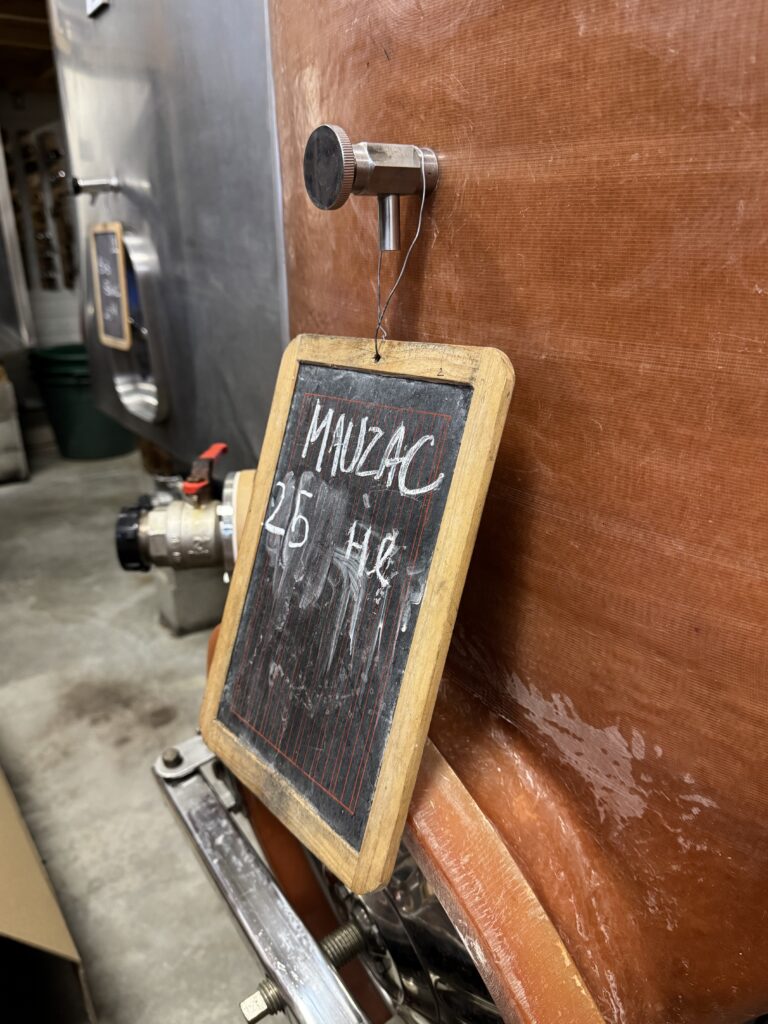 MAUZAC
25 Hl